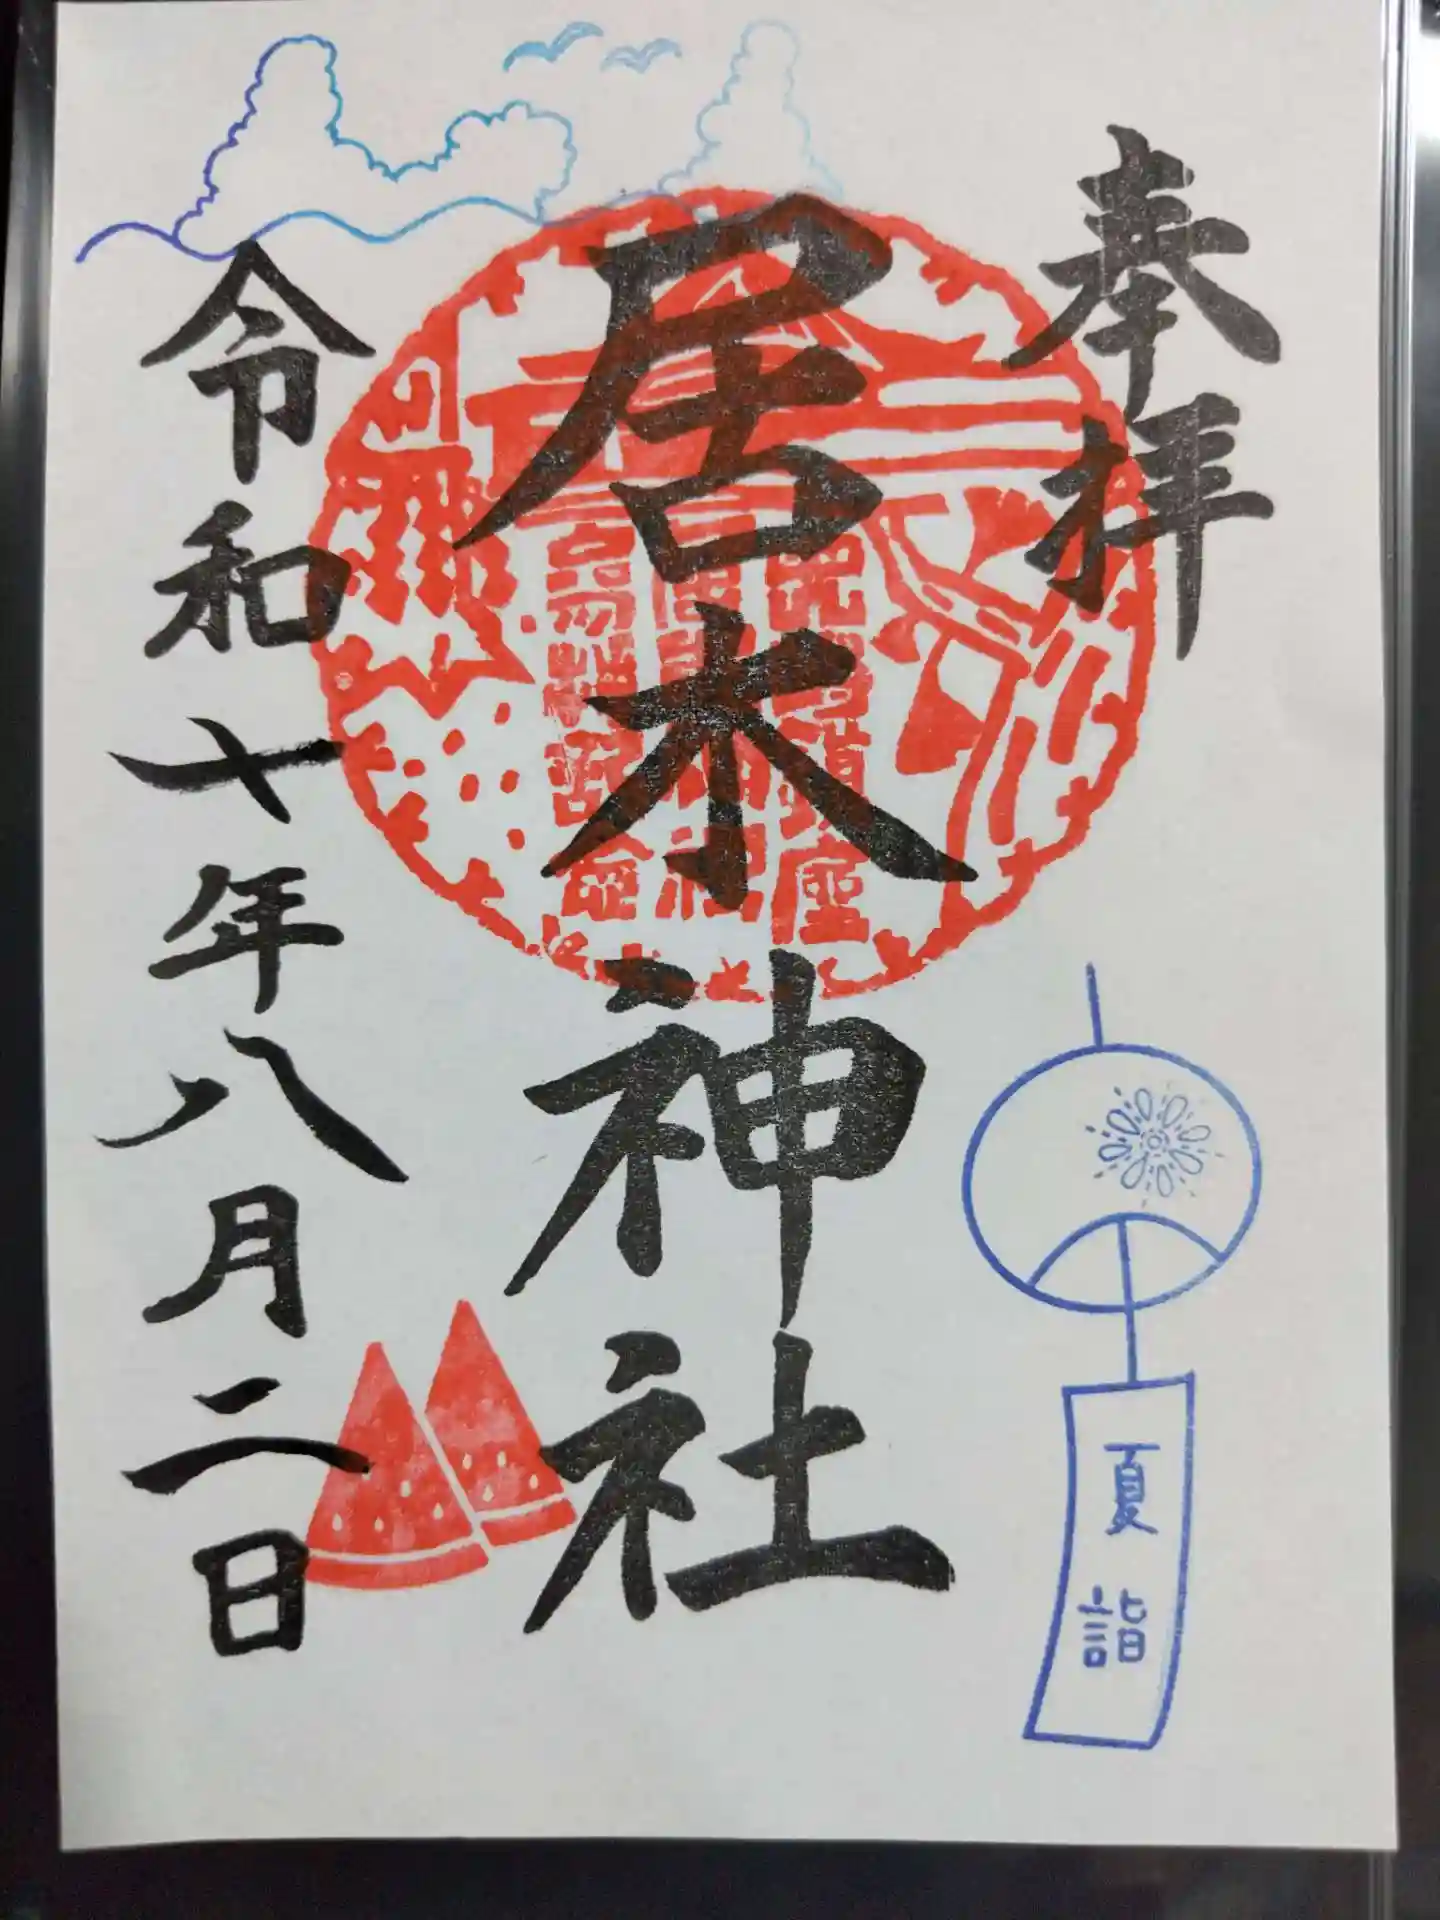 奉拝
居木神社
令和十年八月二日
夏詣